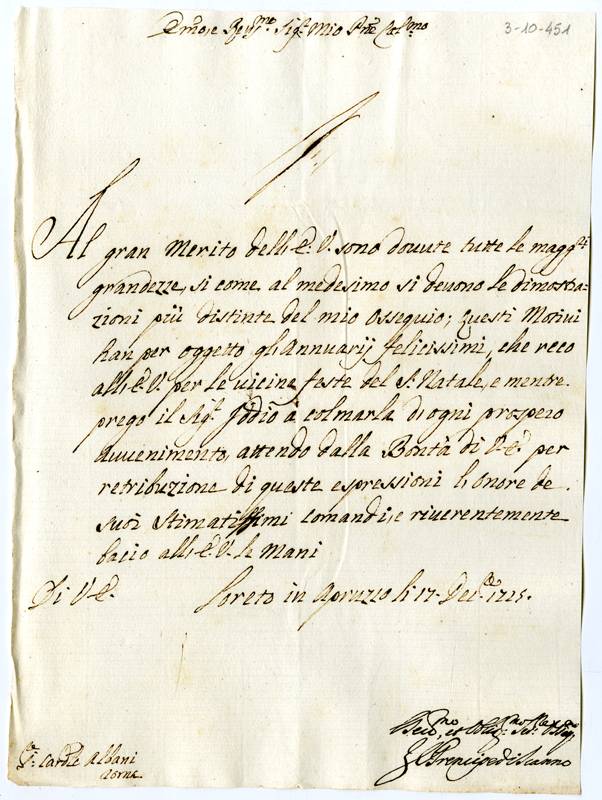 3-10-451
Em̃o, e Rev.mo Sig.r Mio P̃ne Col.mo
Al gran Merito dell'E.V. sono douute tutte le magg.ri
grandezze, si come al medesimo si deuono le dimostra-
zioni più distinte del mio Ossequio; Questi Motiui
han per oggetto gl'Annuarij felicissimi, che reco
all'E.V. per le uicine feste del S. Natale, e mentre
prego il Sig.r Iddio à colmarla di ogni prospero
Auuenimento, attendo dalla Bontà di V.E. per
retribuzione di queste espressioni l'onore de
suoi stimatissimi comandi, e riuerentemente
bacio all'E.V. le Mani
Di V.E. Loreto in Apruzzo li 17 Dec.e 1725.
Dev.mo, et Obblig.mo
Il Prencipe di Scanno
S. Card.le Albani
Roma